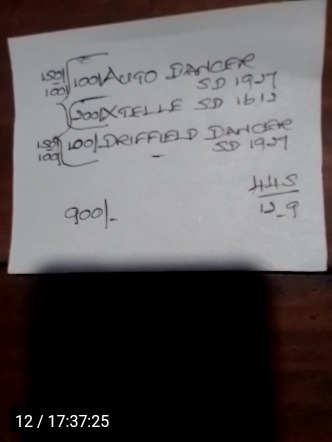 150/100 { 100/ AUGO DANCER
SD 1927
200/ XTELLE SD 1612
150/100 { 100/- DRIFFIELD DANCER
SD 1927
445
12-9
900/-
12 / 17:37:25